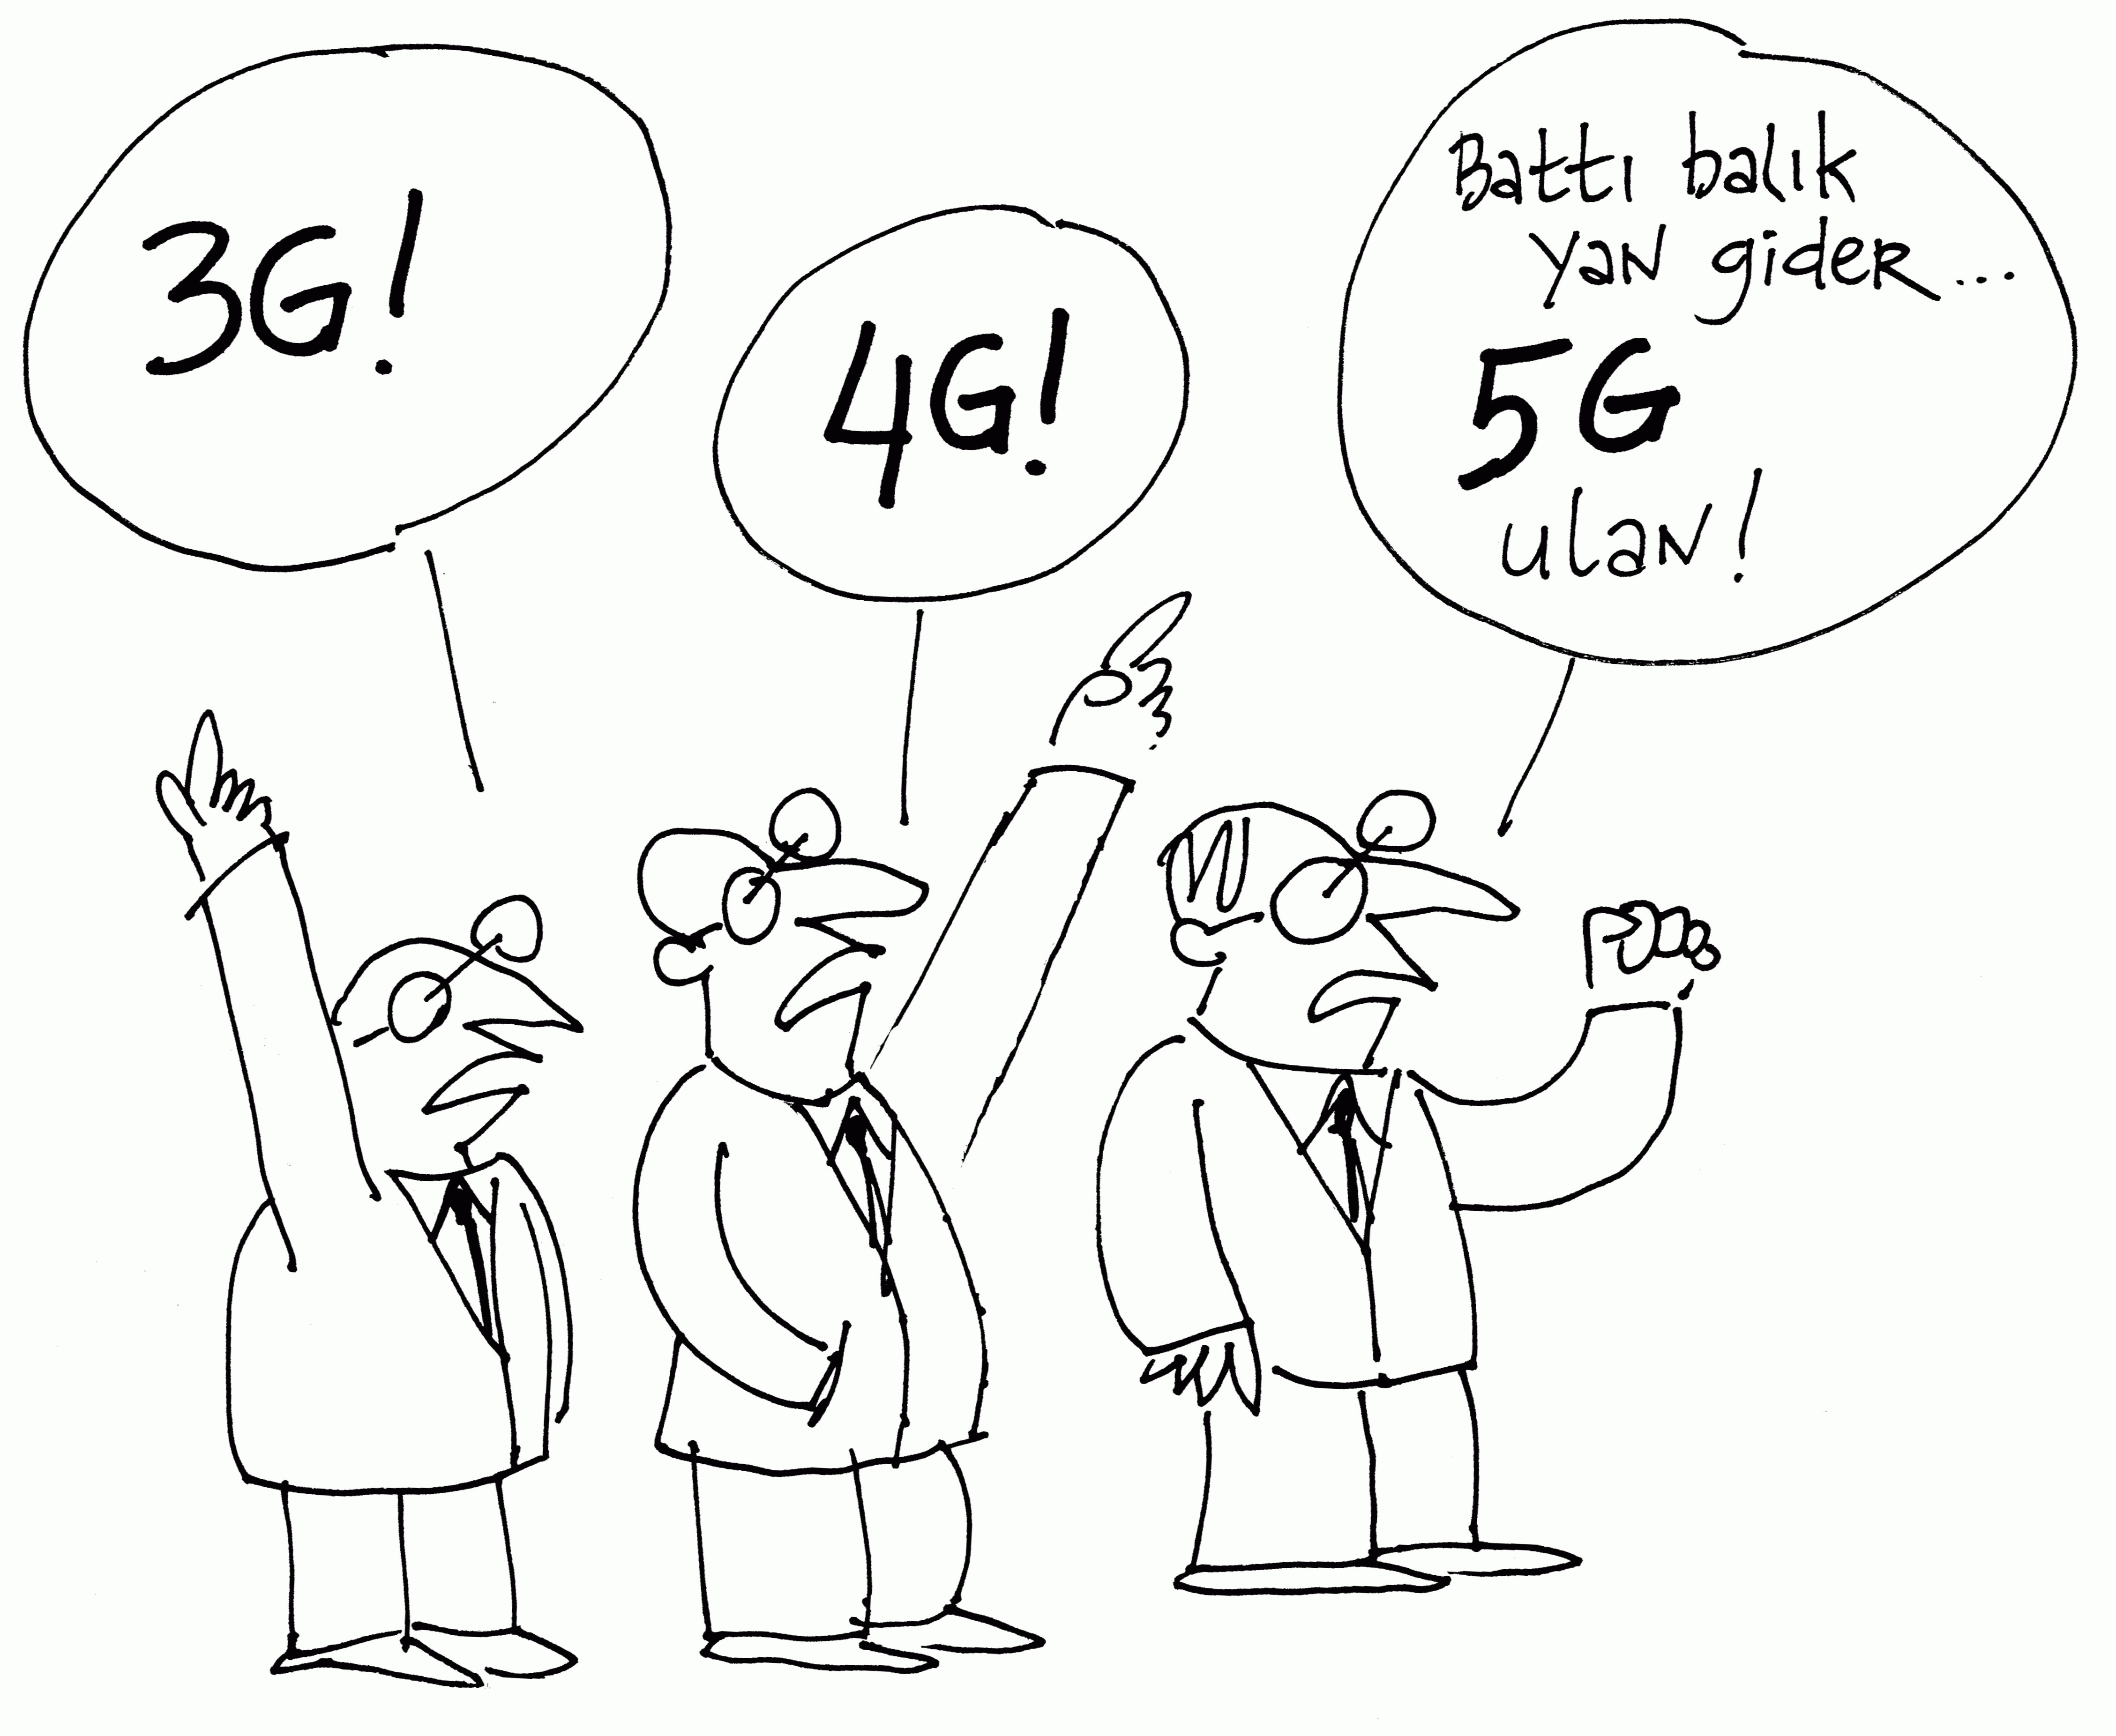 3G!
4G!
Battı balık
yan gider...
5G
ulan!